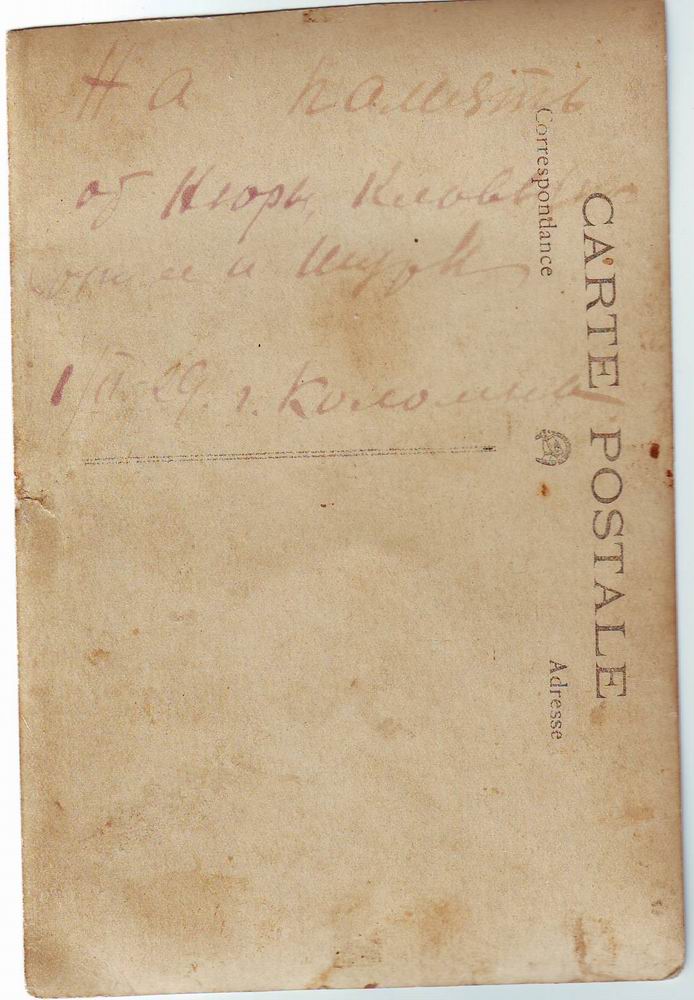 На память
от Нюры,
и Шуры
29. г. Коломна
CARTE POSTALE
Correspondance
Adresse